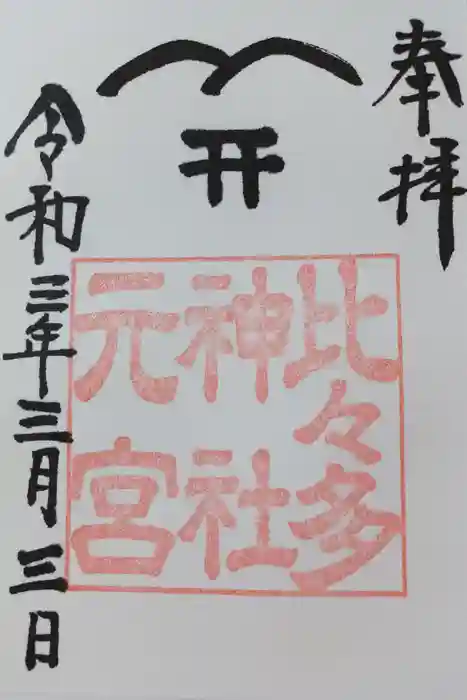 奉拝
比々多
神社
元宮
令和三年三月三日